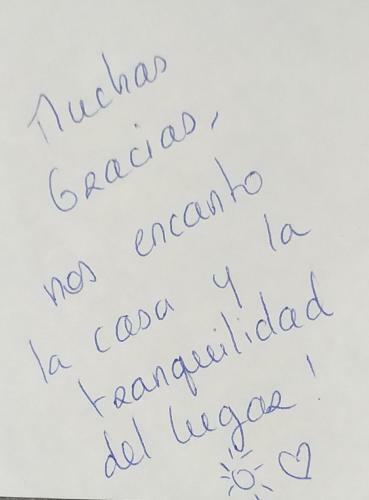 Muchas
Gracias,
nos encanto
la casa y la
tranquilidad
del lugar!